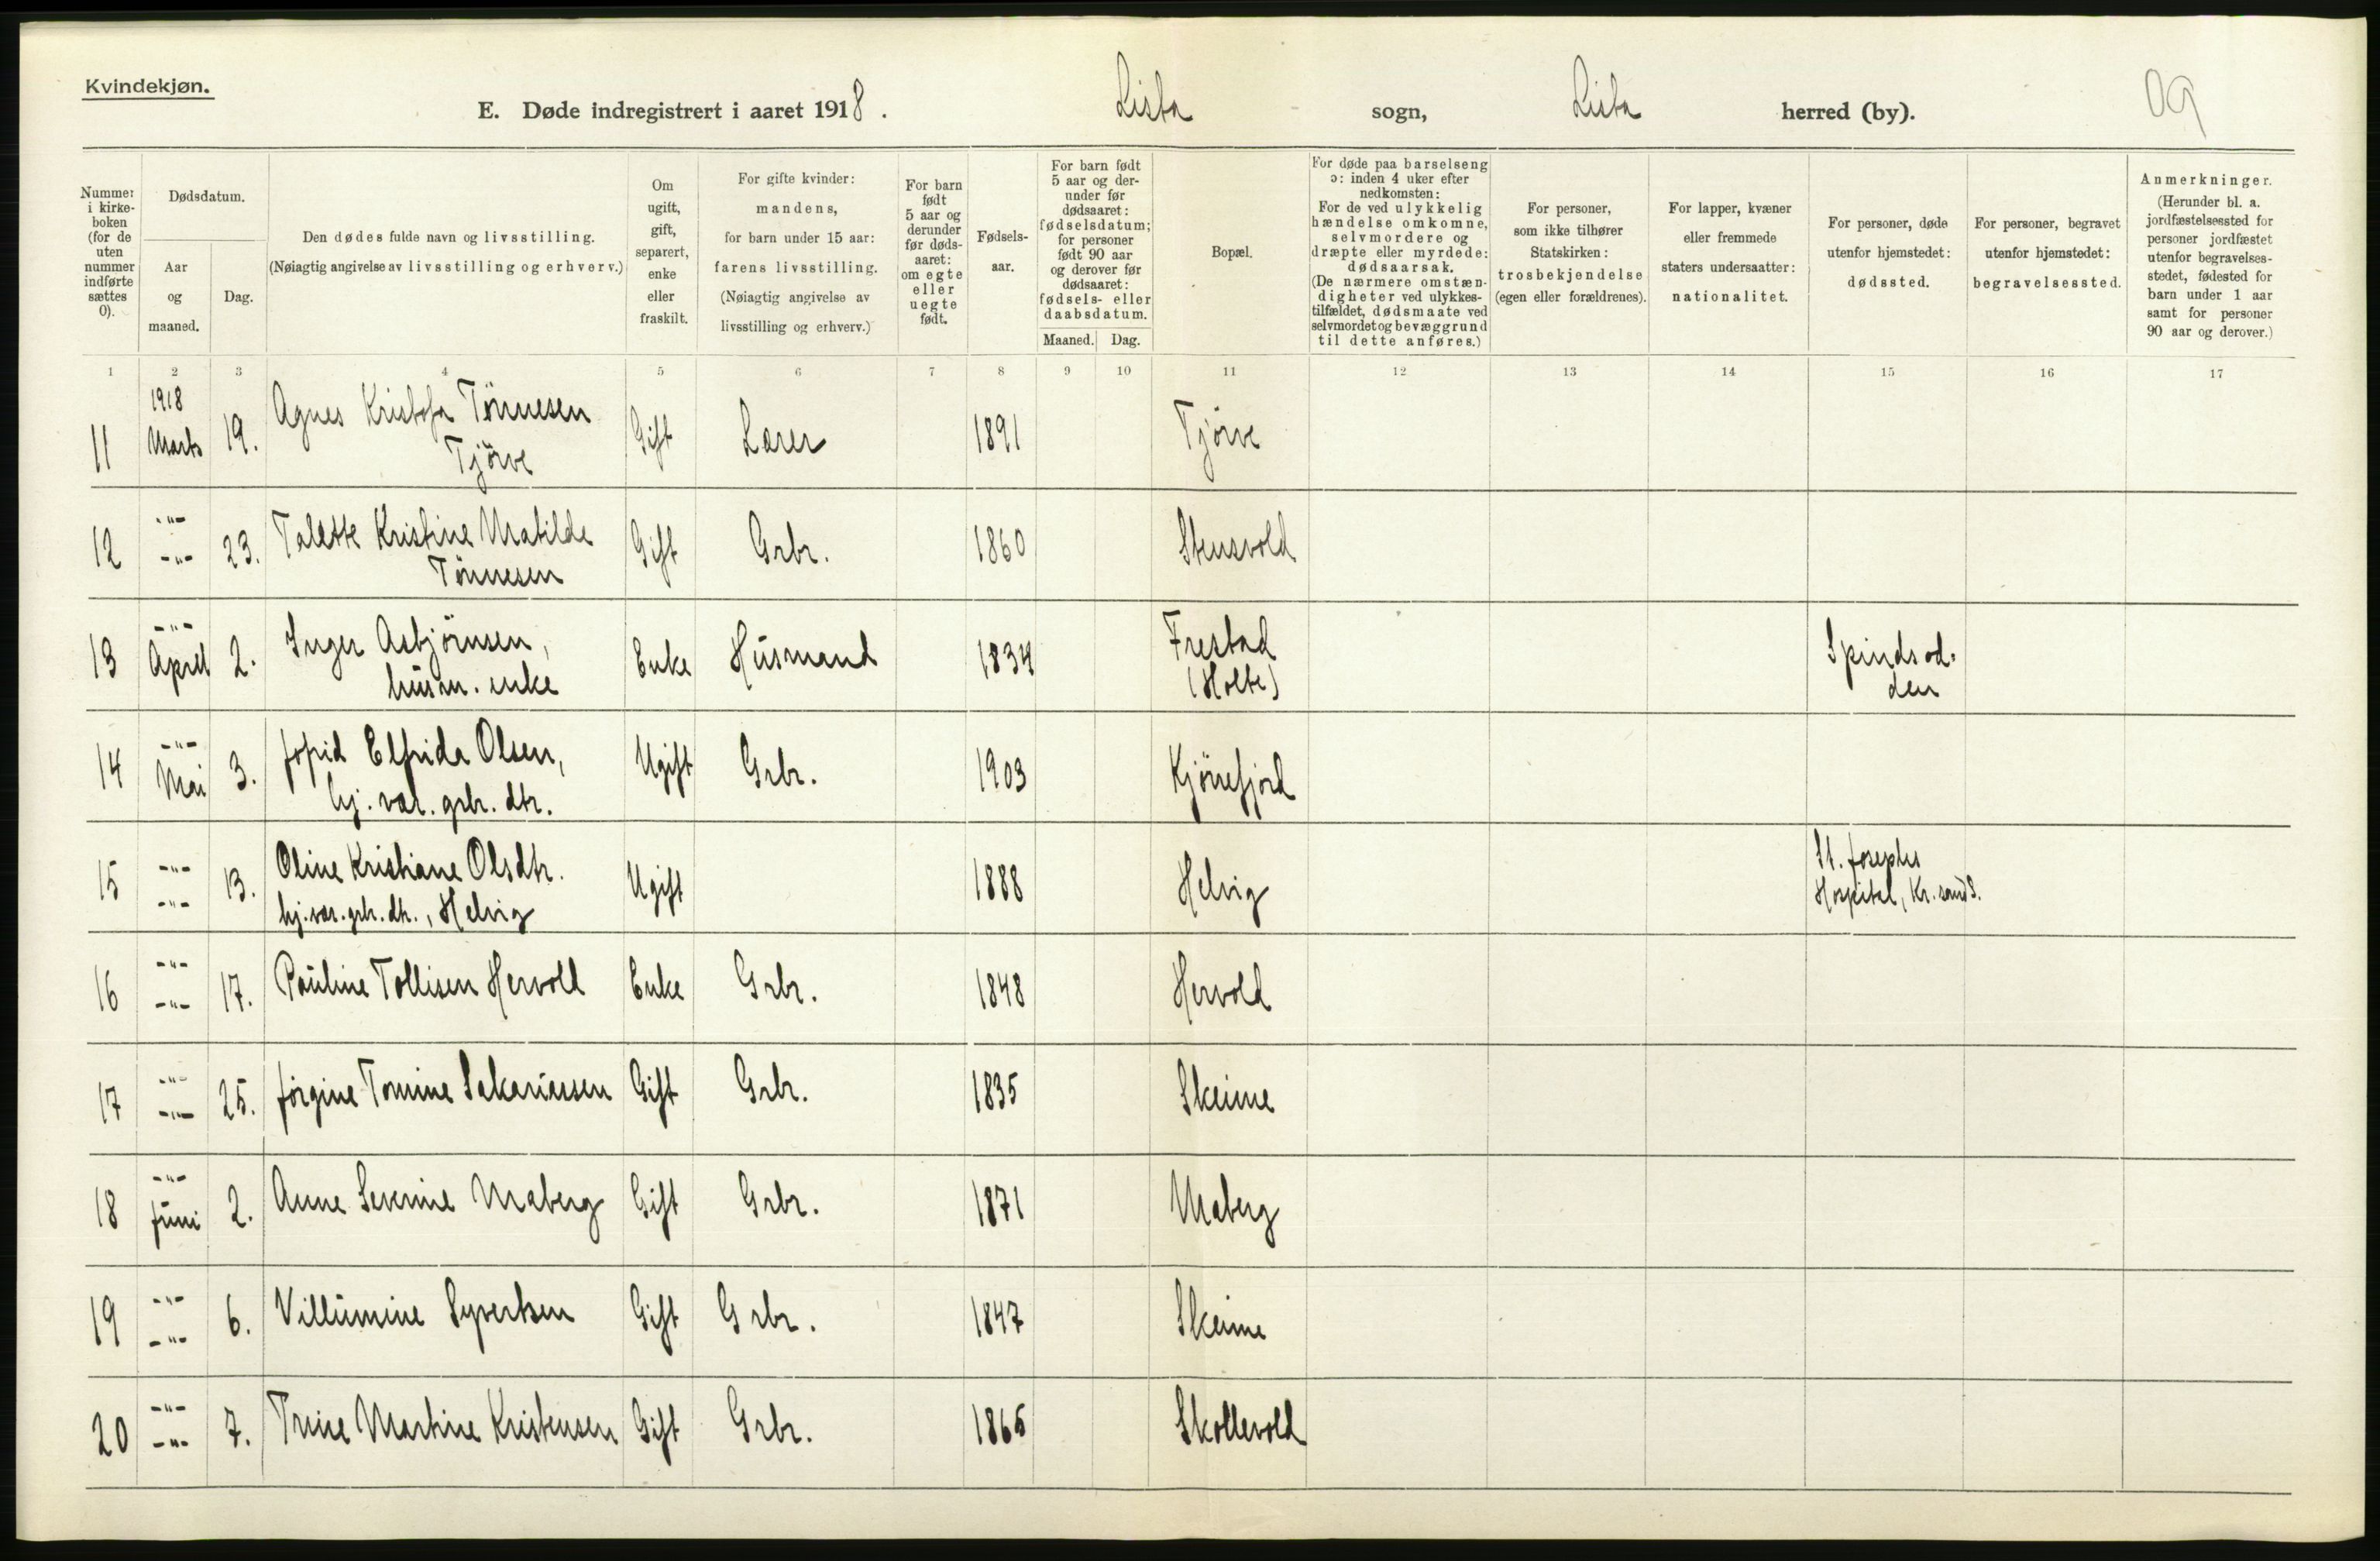 Kvindekjøn.
E. Døde indregistrert i aaret 1918. Lista sogn, Lista herred (by). 09
Nummer i kirkeboken (for de uten nummer indførte sættes 0).
Dødsdatum.
Aar og maaned.
Dag.
Den dødes fulde navn og livsstilling.
(Nøiagtig angivelse av livsstilling og erhverv.)
Om ugift, gift, separert, enke eller fraskilt.
For gifte kvinder:
mandens,
for barn under 15 aar:
farens livsstilling.
(Nøiagtig angivelse av
livsstilling og erhverv.)
For barn født 5 aar og derunder før dødsaaret: om egte eller uegte født.
Fødselsaar.
For barn født
5 aar og derunder før
dødsaaret:
fødselsdatum;
for personer
født 90 aar
og derover før
dødsaaret:
fødsels- eller
daabsdatum.
Maaned. Dag.
Bopæl.
For døde paa barselseng
ɔ: inden 4 uker efter
nedkomsten:
For de ved ulykkelig
hændelse omkomne,
selvmordere og
dræpte eller myrdede:
dødsaarsak.
(De nærmere omstæn-
digheter ved ulykkes-
tilfældet, dødsmaate ved
selvmordet og bevæggrund
til dette anføres.)
For personer,
som ikke tilhører
Statskirken:
trosbekjendelse
(egen eller forældrenes).
For lapper, kvæner
eller fremmede
staters undersaatter:
nationalitet.
For personer, døde
utenfor hjemstedet:
dødssted.
For personer, begravet
utenfor hjemstedet:
begravelsessted.
Anmerkninger.
(Herunder bl. a.
jordfæstelsessted for
personer jordfæstet
utenfor begravelses-
stedet, fødested for
barn under 1 aar
samt for personer
90 aar og derover.)
1 2 3 4 5 6 7 8 9 10 11 12 13 14 15 16 17
11 1918 Marts 19. Agnes Kristofa Tönnesen Gift Lærer 1891 Tjörve
Tjörve
12 -"- -"- 23. Talette Kristine Matilde Gift Grbr. 1860 Stensvold
Tönnesen
13 -"- April 2. Inger Asbjörnsen, Enke Húsmand 1834 Frestad (Holte) Spindsodden
húsm. enke
14 -"- Mai 3. Elfrida Olsen, Ugift Grbr. 1903 Kjörrefjord
hj. vær. grbr. dtr.
15 -"- -"- 13. Oline Kristiane Olsdtr. Ugift 1888 Helvig St. Josephs
hj. vær. grbr. dtr., Helvig Hospital, Kr.sand S.
16 -"- -"- 17. Paúline Tollisen Hervold Enke Grbr. 1848 Hervold
17 -"- -"- 25. Jörgine Tomine Sakariassen Gift Grbr. 1835 Skeime
18 -"- Júni 2. Anne Severine Maberg Gift Grbr. 1871 Maberg
19 -"- -"- 6. Villúmine Syvertsen Gift Grbr. 1847 Skeime
20 -"- -"- 7. Trine Martine Kristensen Gift Grbr. 1865 Skollevold